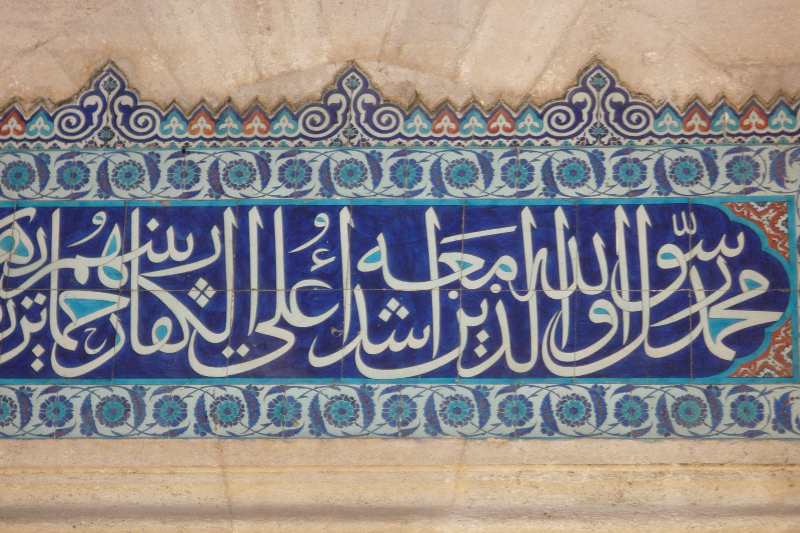 محمد رسول الله والذين معه اشداء على الكفار رحماء بينهم تريهم ر